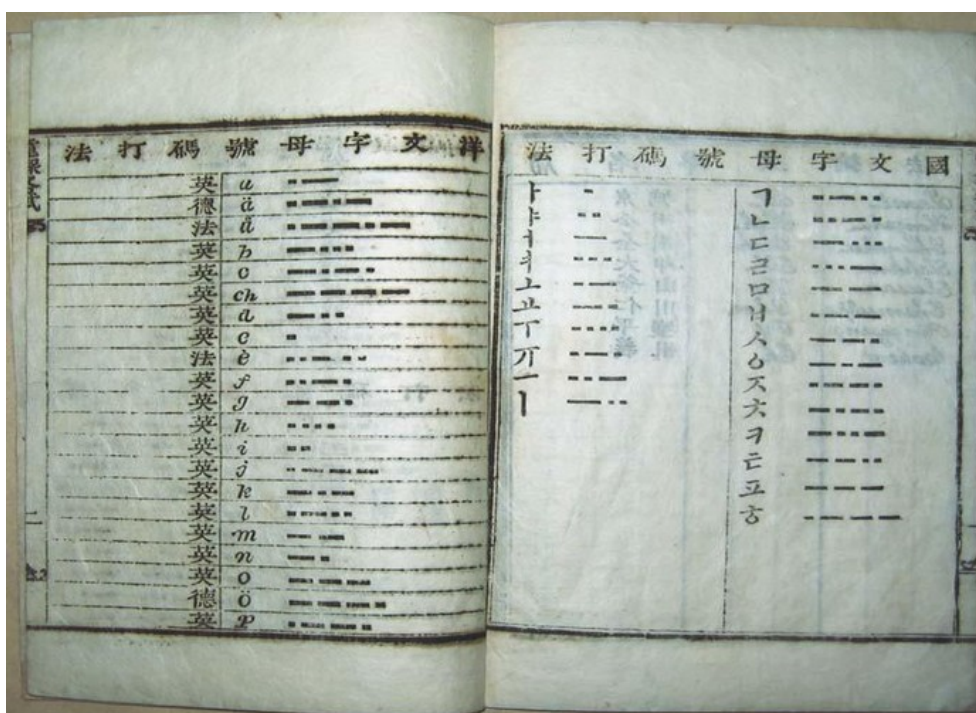 國文字母號碼打法
ㄱ
ㄴ
ㄷ
ㄹ
ㅁ
ㅂ
ㅅ
ㅇ
ㅈ
ㅊ
ㅋ
ㅌ
ㅍ
ㅎ
ㅏ
ㅑ
ㅓ
ㅕ
ㅗ
ㅛ
ㅜ
ㅠ
ㅡ
ㅣ
洋文字母號碼打法
英 a
德 ä
法 å
英 b
英 c
英 ch
英 d
英 e
法 è
英 f
英 g
英 h
英 i
英 j
英 k
英 l
英 m
英 n
英 o
德 ö
英 p